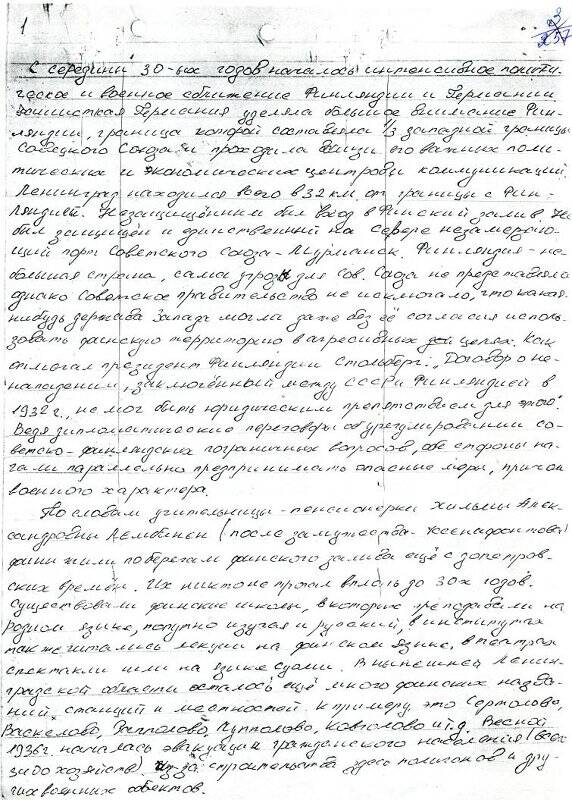 1
3
257
С середины 30-ых годов началось интенсивное полити-
ческое и военное сближение Финляндии и Германии.
Фашисткая Германия уделяла большое внимание Фин-
ляндии, граница которой составляла 1/3 западной границы
Советского Союза и проходила вблизи его важных поли-
тических и экономических центров и коммуникаций.
Ленинград находился всего в 32 км. от границы с Фин-
ляндией. Незащищённым был вход в Финский залив. Не
был защищён и единственный на севере незамерзаю-
щий порт Советского Союза - Мурманск. Финляндия - не-
большая страна, сама угрозы для Сов. Союза не представляла
однако Советское правительство не исключало, что какая-
нибудь держава Запада могла даже без её согласия исполь-
зовать финскую территорию в агресивных целях. Как
отмечал президент Финляндии Стольберг: „Договор о не-
нападении, заключённый между СССР и Финляндией в
1932 г., не мог быть юридическим препятствием для этого".
Ведя дипломатические переговоры об урегулировании со-
ветско-финляндских пограничных вопросов, обе стороны на-
чали параллельно предпринимать опасные меры, причём
военного характера.
По словам учительницы-пенсионерки Хильмы Алек-
сандровны Лембинен (после замужества - Ксенафонтова)
финны жили по берегам финского залива ещё с допетров-
ских времён. Их никто не трогал вплоть до 30х годов.
Существовали финские школы, в которых преподавали на
родном языке, попутно изучая и русский, в институтах
также читались лекции на финском языке, в театрах
спектакли шли на языке суоми. В нынешней Ленин-
градской области осталось ещё много финских назва-
ний станций и местностей. К примеру, это Сертолово,
Васкелово, Лепполово, Куттолово, Кавголово и т.д. Весной
1936г. началась эвакуация гражданского населения
хозяйств) из-за строительства здесь полигонов и дру-
гих военных обектов.